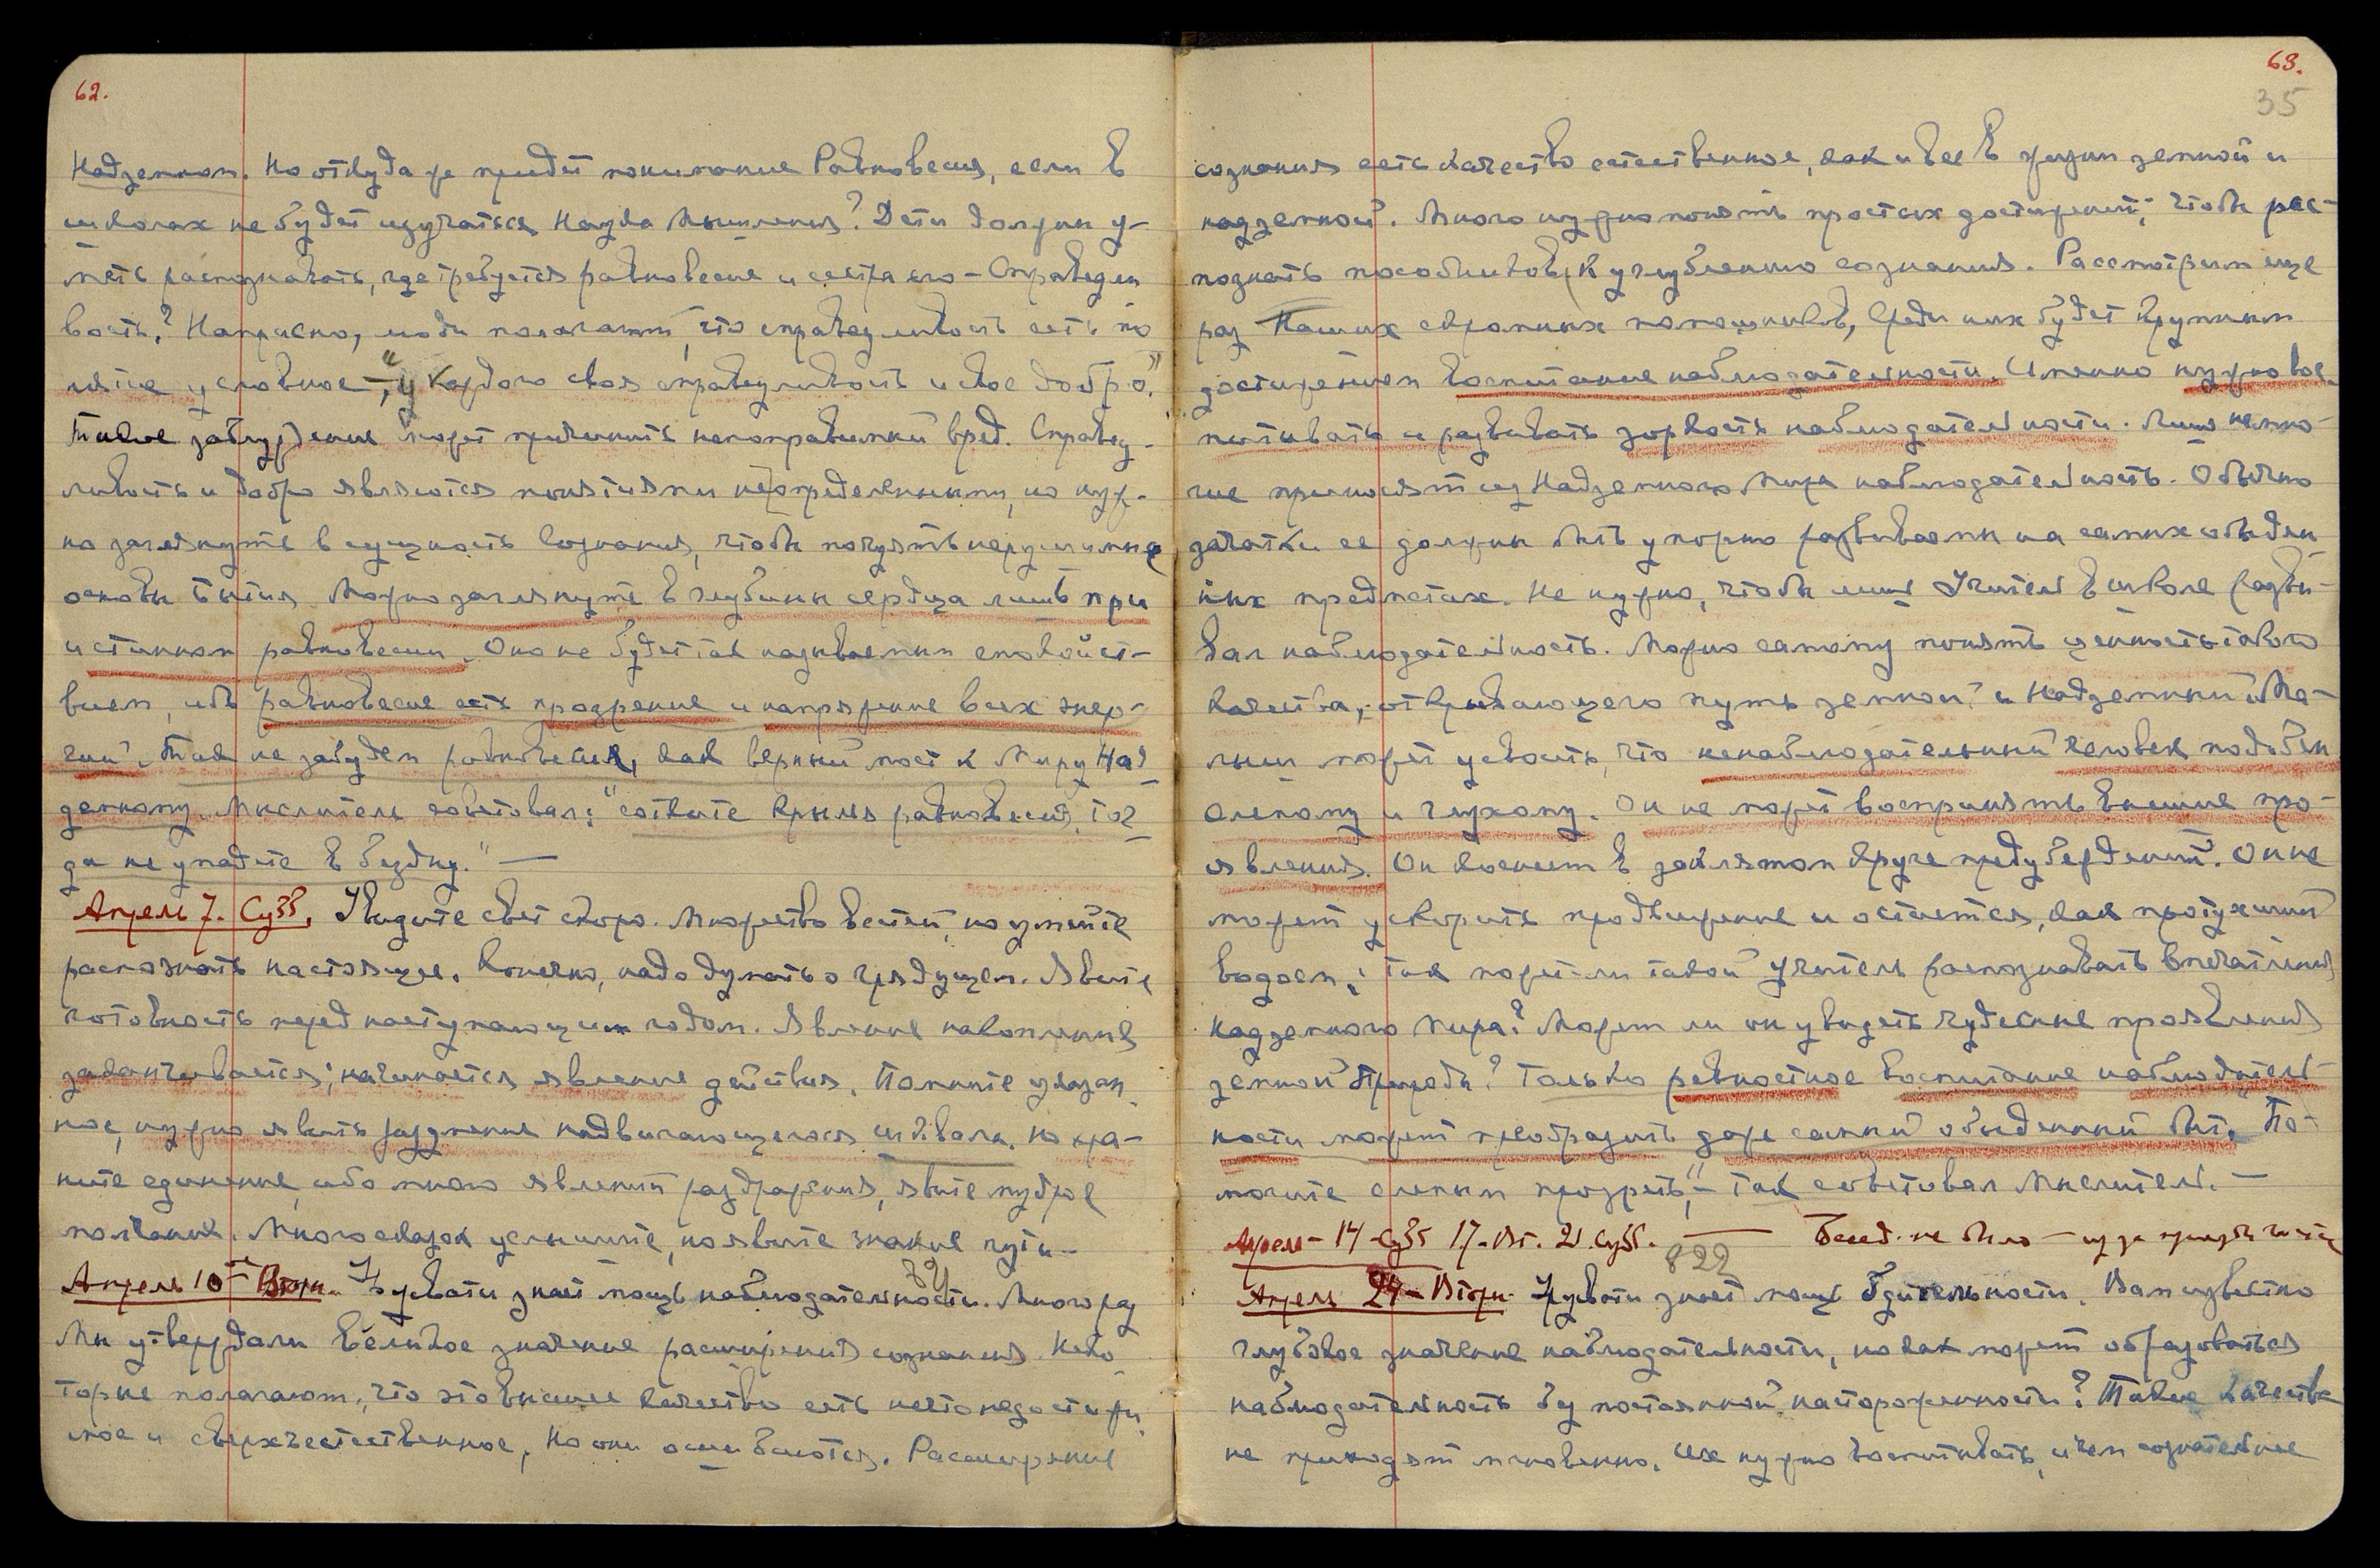 62.
Надземном. Но откуда же придет понимание Равновесия, если в
школах не будет изучаться Наука Мышления? Дети должны у-
меть распознавать, где требуется равновесие и сестра его – Справедли
вость? Напрасно, люди полагают, что справедливость есть по
нятие условное – "у каждого своя справедливость и свое добро."
Такое заблуждение может причинить непоправимый вред. Справед-
ливость и добро являются понятиями неопределенными, но нуж-
но заглянуть в сущность сознания, чтобы почуять нерушимые
основы Бытия. Можно заглянуть в глубины сердца лишь при
истинном равновесии. Оно не будет так называемым спокойст-
вием, ибо равновесие есть прозрение и напряжение всех энер-
гий. Так не забудем равновесия, как верный мост к Миру Над
земному. Мыслитель советовал: "сотките крылья равновесия, тог
да не упадете в бездну." —
Апрель 7. Субб. Увидите свет скоро. Множество вестей, но умейте
распознать настоящее. Конечно, надо думать о грядущем. Явите
готовность перед наступающим годом. Явление накопления
заканчивается; начинается явление действия. Помните указан
ное, нужно явить рождение надвигающегося шквала. Но хра-
ните единение, ибо много явлений раздражения, явите мудрое
молчание. Много сказок услышите, но явите знание пути –
Апрель 10 – Вторн. Урусвати знает мощь наблюдательности. Много раз
821
Мы утверждали великое значение расширения сознания. Неко
торые полагают, что это высшее качество есть нечто недостижи
мое и сверхъестественное. Но они ошибаются. Расширение
63.
35
сознания есть качество естественное, как и все в жизни земной и
надземной. Много нужно понять простых достижений, чтобы рас-
познать пособников к углублению сознания. Рассмотрим еще
раз Наших скромных помощников, среди них будет крупным
достижением воспитание наблюдательности. Именно нужно вос-
питывать и развивать зоркость наблюдательности. Лишь немно-
гие приносят из Надземного Мира наблюдательность. Обычно
зачатки ее должны быть упорно развиваемы на самых обыден
ных предметах. Не нужно, чтобы лишь Учитель в школе разви-
вал наблюдательность. Можно самому понять ценность такого
качества, открывающего путь земной и Надземный. Ма-
лыш может усвоить, что ненаблюдательный человек подобен
слепому и глухому. Он не может воспринять внешние про-
явления. Он коснеет в заклятом круге предубеждений. Он не
может ускорить продвижение и остается, как протухший
водоем; так может ли такой учитель распознавать впечатления
надземного Мира? Может ли он увидеть чудесные проявления
земной Природы? Только ревностное воспитание наблюдатель-
ности может преобразить даже самый обыденный быт. "По-
могите слепым прозреть", – так советовал Мыслитель. —
Апрель – 14 – Субб 17 – Вт. 21. Субб. — Бесед. не было – из за
822
Апрель 24 – Вторн. Урусвати знает мощь бдительности. Вам известно
глубокое значение наблюдательности, но как может образоваться
наблюдательность без постоянной настороженности? Такие качества
не приходят мгновенно. Их нужно воспитывать, и чем сознательнее